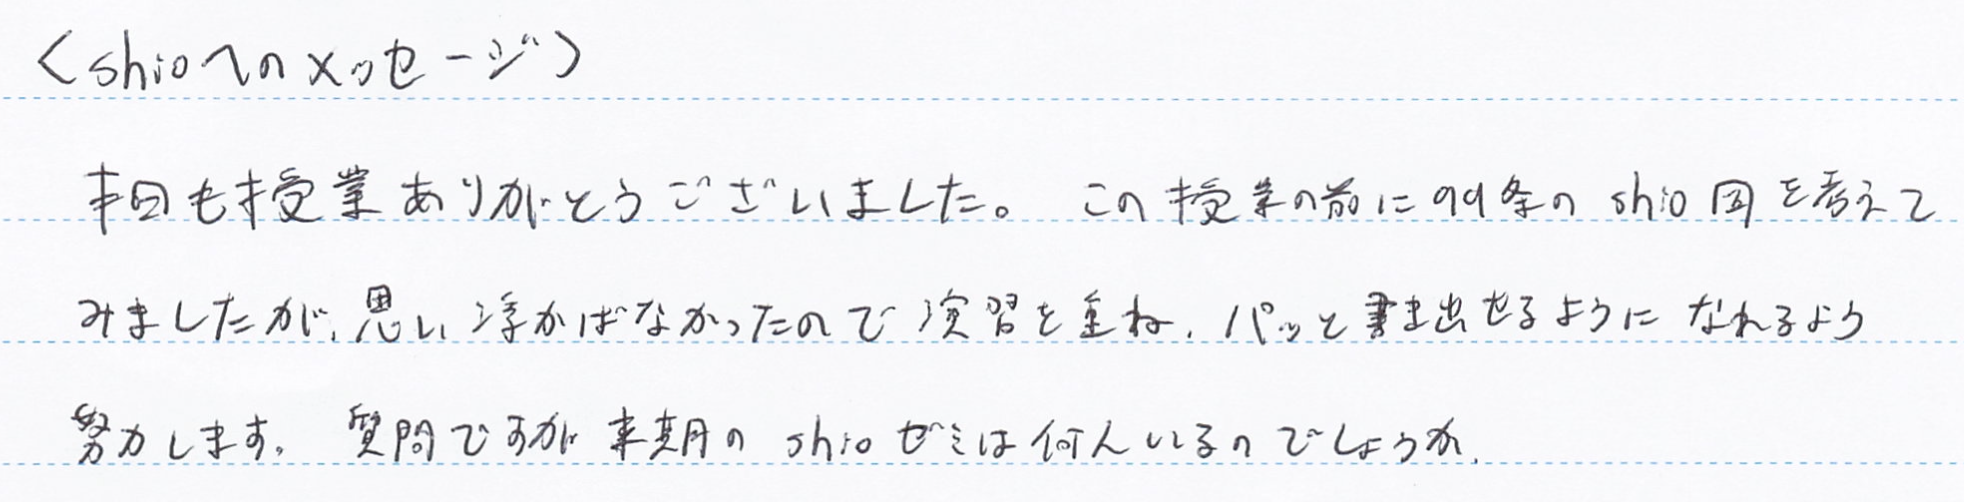 〈shioへのメッセージ〉
本日も授業ありがとうございました。この授業の前に99条のshio図を考えて
みましたが、思い浮かばなかったので演習を重ね、パッと書き出せるようになれるよう
努力します。質問ですが来期のshioゼミは何人いるのでしょうか。